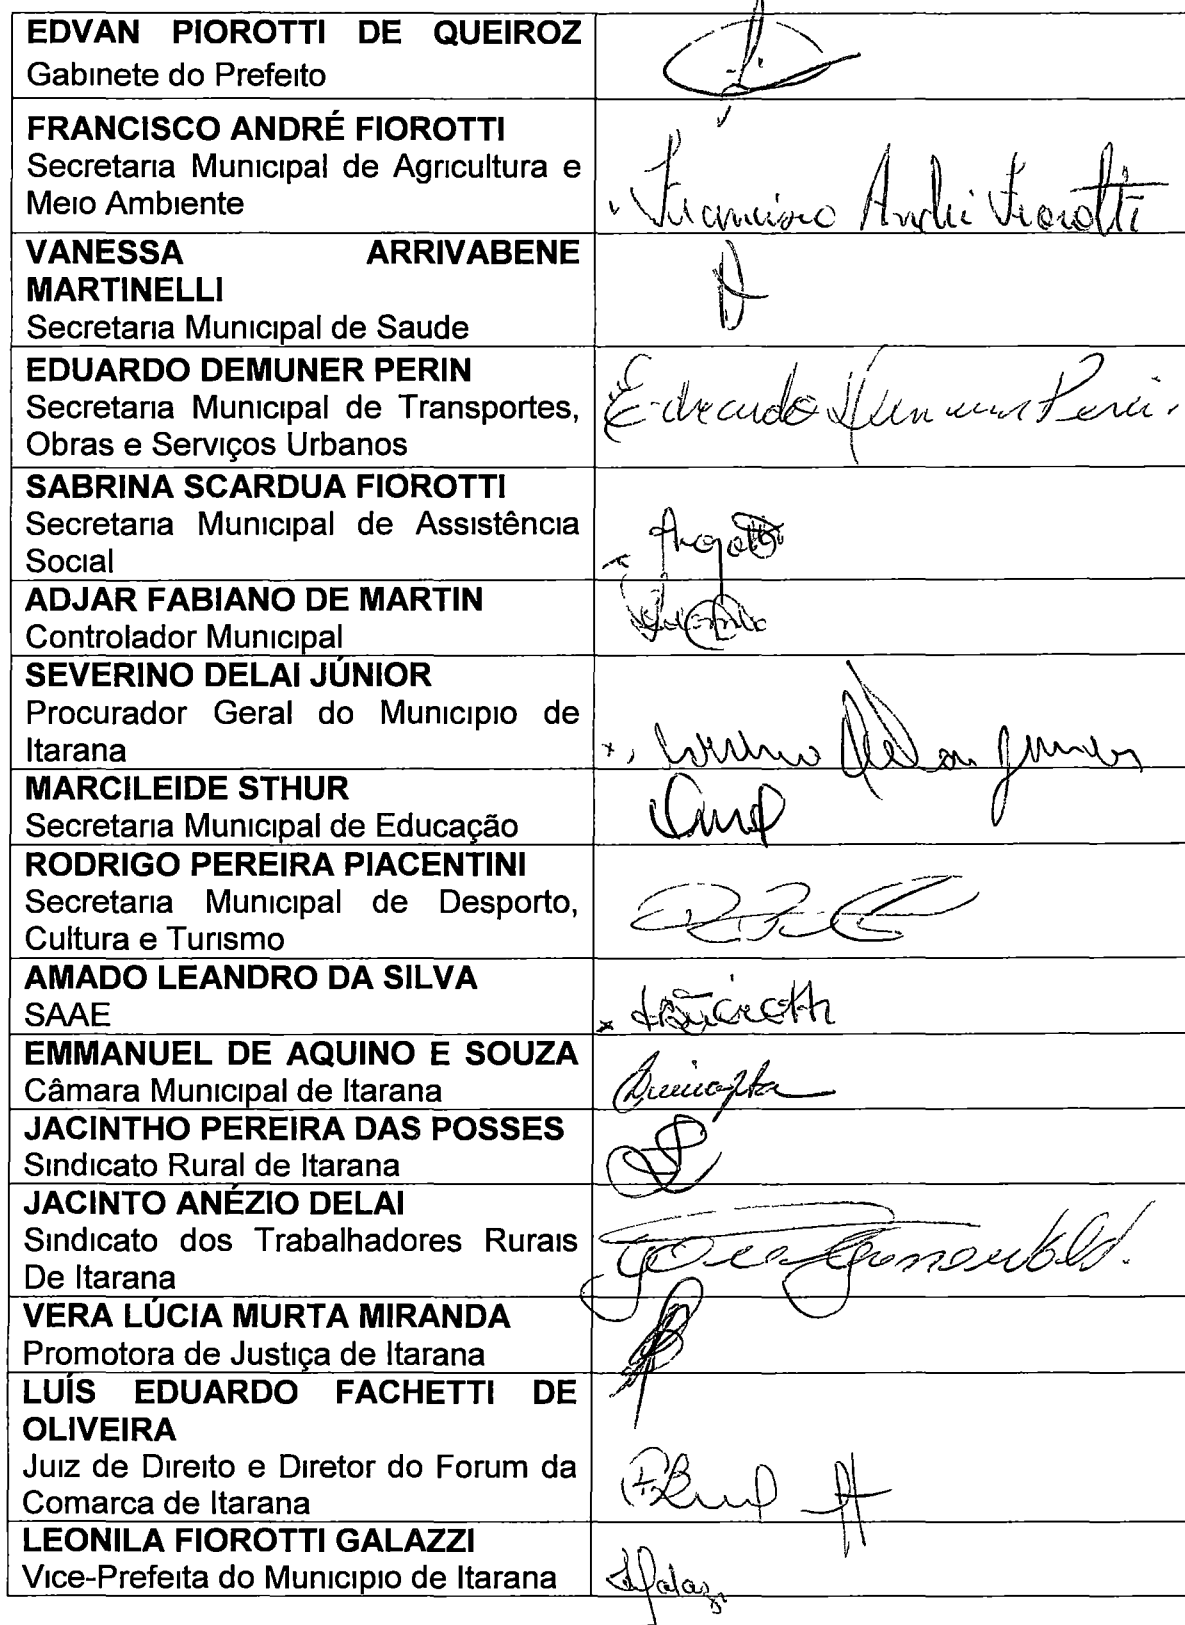 EDVAN PIOROTTI DE QUEIROZ
Gabinete do Prefeito
FRANCISCO ANDRÉ FIOROTTI
Secretaria Municipal de Agricultura e
Meio Ambiente
Francisco André Fiorotti
VANESSA ARRIVABENE
MARTINELLI
Secretaria Municipal de Saude
EDUARDO DEMUNER PERIN
Secretaria Municipal de Transportes,
Obras e Serviços Urbanos
Eduardo Demuner Perin
SABRINA SCARDUA FIOROTTI
Secretaria Municipal de Assistência
Social
ADJAR FABIANO DE MARTIN
Controlador Municipal
SEVERINO DELAI JÚNIOR
Procurador Geral do Municipio de
Itarana
Severino Delai Junior
MARCILEIDE STHUR
Secretaria Municipal de Educação
RODRIGO PEREIRA PIACENTINI
Secretaria Municipal de Desporto,
Cultura e Turismo
AMADO LEANDRO DA SILVA
SAAE
EMMANUEL DE AQUINO E SOUZA
Câmara Municipal de Itarana
JACINTHO PEREIRA DAS POSSES
Sindicato Rural de Itarana
JACINTO ANÉZIO DELAI
Sindicato dos Trabalhadores Rurais
De Itarana
VERA LÚCIA MURTA MIRANDA
Promotora de Justiça de Itarana
LUÍS EDUARDO FACHETTI DE
OLIVEIRA
Juiz de Direito e Diretor do Forum da
Comarca de Itarana
LEONILA FIOROTTI GALAZZI
Vice-Prefeita do Municipio de Itarana